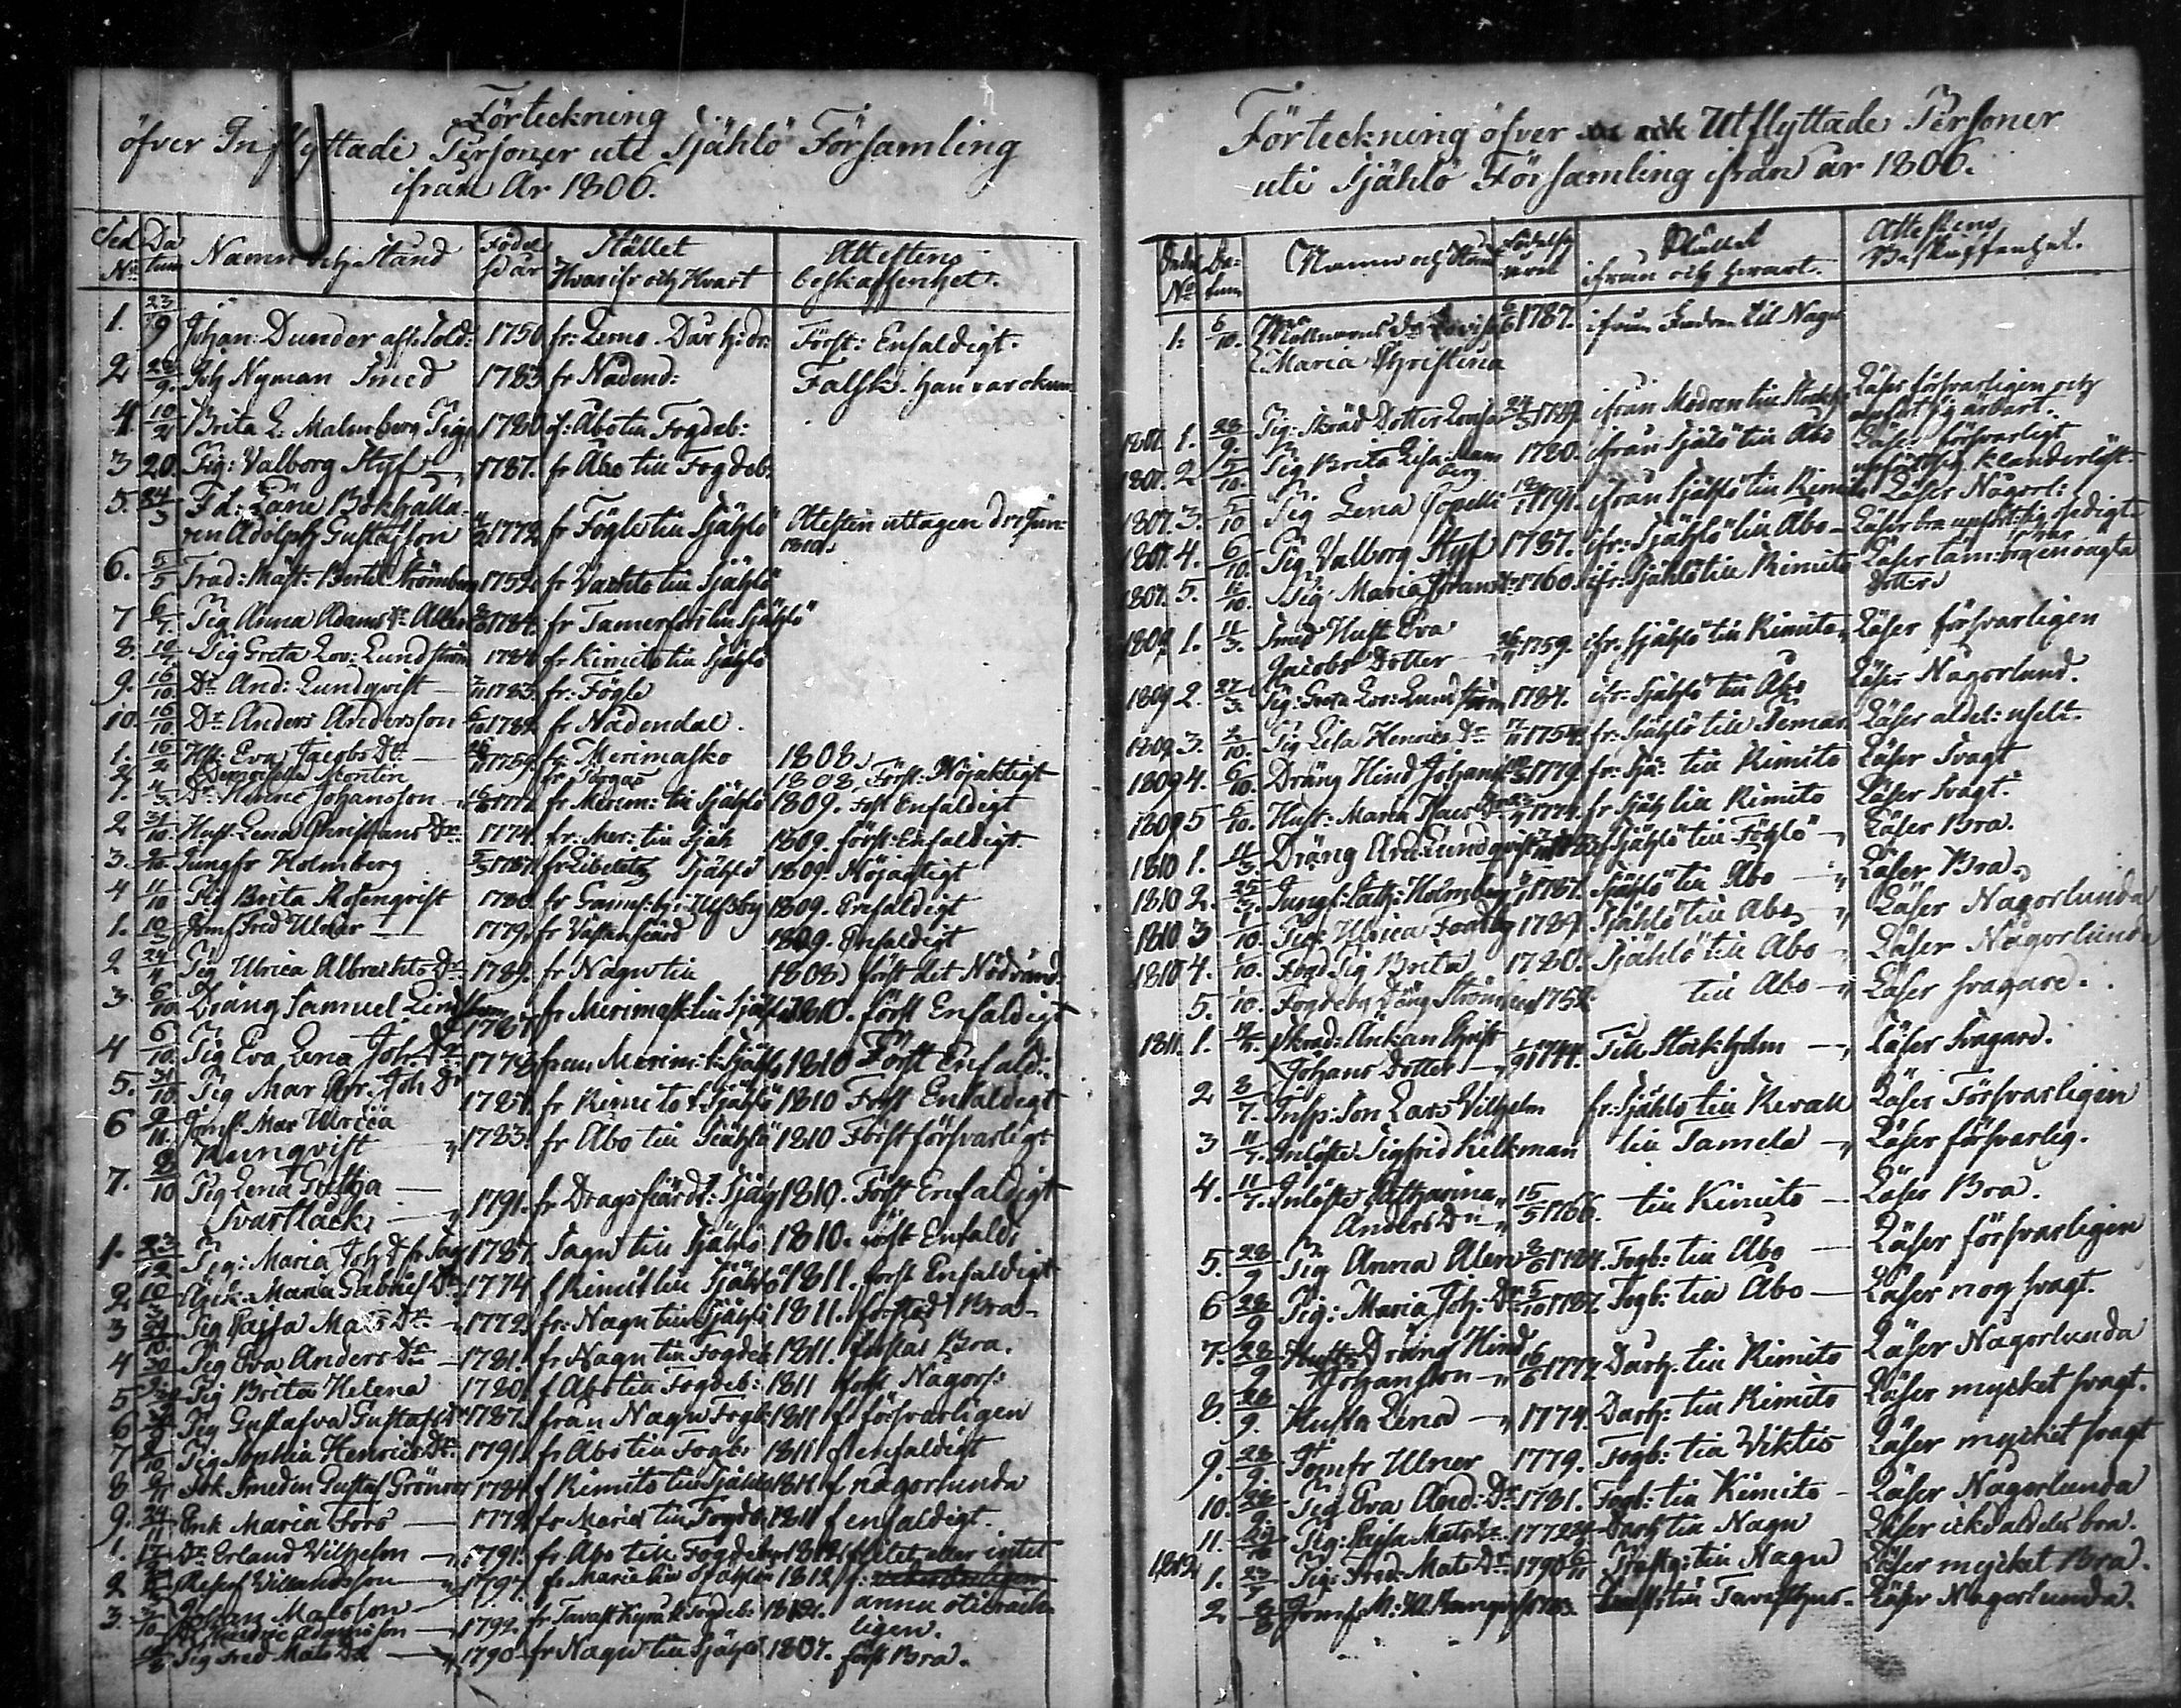 Förteckning
öfver Inflyttade Personer uti Sjählö Församling
ifrån År 1806.
Sed Da Namn och Stånd Födel Stället Attestens
No tum sår Hvarifr och Hvart beskaffenhet.
1. 23/9 Johan: Dunder afsk. Sold: 1750 fr: Lemo. Dår h: dr: Först: Enfaldigt.
2 28/9. Joh Nyman Smed 1783 fr Nådend: Falsk. han var okun
4. 10/21 Brita L: Malmberg Pig 1780 if: Åbo till Fogdeb:
3 20. Pig: Valborg Styf 1787. fr Åbo till Fogdeb.
5. 24/3 Fd: Läne Bokhålla-
ren Adolph Gustafsson 1772 fr Föglö till Sjählö Attesten uttagen
6. 5/5 Trad: Mäst: Bertel Strömberg 1752 fr till Sjählö
7 6/7. Pig Anna Adams Dr Alen 1784. fr Tamerfors till Sjählö
8. Pig Greta Lov: Lundström 1784 fr Kimito till Sjählö
9. 16/10. Dr And: Lundqvist 1783. fr: Föglö
10. 16/10. Dr Anders Andersson 1782. fr Nådendal.
1. 16/2 Hst: Eva Jacobs Dr 26/11 1759. fr Merimasko 1808.
2. Demoiselle Montin fr Pargas 1808. Först: Nöjaktigt
1. Dr Henric Johansson 1777. fr Merim: till Sjählö 1809. Först Enfaldigt
2 31/10. Hust: Lena Christians Dr 1774. fr: Mer: till Sjäh 1809. först: Enfaldigt
3. Jungfr Holmberg 1787. fr Libelitz Sjählö 1809. Nöjaktigt
4 11/10 Pig Brita Rosenqvist 1780 fr 1809. Enfaldigt
1. 10/3 Jomf Fred Ulner 1779. fr Västanfjärd 1809. Enfaldigt
2 24/4 Pig Ulrica Albrechts Dr 1789. fr Nagu till 1808. först det Nödvänd.
3. 6/10. Dräng Samuel Lindbom 1767. fr Merimask till Sjähl 1810. först Enfaldigt
4 6/10. Pig Eva Lena Joh: Dr 1778 från Merim: t: Sjähl 1810 Först Enfald:
5. 31/10 Pig Mar Joh Dr 1787. fr Kimito t. Sjählö 1810 Först Enfaldigt
6 2/11. Jomf. Mar Ulrica
Kunqvist 1783. fr Åbo till Sjählö 1810 Först försvarligt
7. 8/10 Pig Lena Gretha
Svartbäck 1791. fr Dragsfjärd t: Sjäh 1810. Först Enfaldigt
1. 23/12 Pig: Maria Joh Dr fr Sag 1787. Sagu till Sjählö 1810. först Enfaldi
2 10/3 Enk. Maria Gabriels Dr 1774 f Kimito till Sjählö 1811. först Enfaldigt
3 24/10. Pig Cajsa Mats Dr 1772. fr: Nagu till Sjählö 1811. förstod Bra
4 30 Pig Eva Anders Dr 1781. fr Nagu till Fogdeb 1811. förstår Bra.
5 Pig Brita Helena 1780. f Åbo till Fogdeb: 1811 först Någors:
6 Pig Gustafva Gustafs Dr 1787. från Nagu Fogb 1811 f försvarligen
7 2/10 Pig Sophia Henrics Dr 1791. fr Åbo till Fogb. 1811 f enfaldigt
8 2/11 Sok Smeden Gustaf Grönroos 1784. f Kimito till Sjählö 1811 f någorlunda
9. 24/11 Enk Maria Fors 1772. fr Marie till Fogdb. 1811 f enfaldigt.
1. Dr Erland Vilhelson 1791. fr Åbo till Fogdeb 1812 f litet eller intet
2 Villandsson 1797. fr Marie till Sjählö 1812 f:
3. 3/10 Johan Malsson annu otilräck-
Henric Adamsson 1792. fr Tavast Kyrö t: Fogdeb: 1812. ligen.
Pig Fred Mats Dr 1790 fr Nagu till Sjählö 1807. först Bra.
Förteckning öfver Utflyttade Personer
uti Sjählö Församling ifrån år 1806.
Order Da- Namn och Stånd Födelse Stället Attestens
No tum året ifrån och hvart. Beskaffenhet.
1. 6/10. Dr Lovisa 1787. ifrån till Nagu
Maria Christina
1807. 1. 28/9. Pig: Skräd Dotter Lovisa 24/3 1789. ifrån Modren till Stockh. Läser försvarligen och
upfört sig ärbart.
1807. 2 5/10. Pig Brita Lisa: Malm 1780. ifrån Sjählö till Åbo Läser försvarligt
berg upfört sig klanderlöst
1807. 3. 5/10 Pig Lena Copelli 1791. ifrån Sjählö till Kimito Läser Någorl:
1807. 4. 6/10. Pig Valborg Styf 1787. ifr: Sjählö till Åbo Läser bra upfört sig sedigt
1807. 5. 12/10. Pig Maria Frans Dr 1760. ifr: Sjählö till Kimito Läser
Dotter
1809 1. 11/3. Smed Hust Eva
Jacobs Dotter 26/11 1759. ifr. Sjählö till Kimito, Läser försvarligen
1809 2. 27/3. Pig: Greta Lov: Lundström 1784. ifr: Sjählö till Åbo Läser Någorlund.
1809 3. 2/10. Pig Lisa Henrics Dr 1754. fr: Sjählö till Pemar Läser aldel: uselt.
1809 4. 6/10. Dräng Hind Johans 1779. fr: Sjä: till Kimito Läser Svagt
1809 5 6/10. Hust: Maria Dr 1774. fr Sjäh till Kimito Läser Svagt.
1810 1. 11/3. Dräng And Lundqvist Sjählö till Föglö Läser Bra.
1810 2. 25/3. Jungf: Cath: Holmberg 1787. Sjählö till Åbo Läser Bra.
1810. 3 10. Pig: Ulrica 1789. Sjählö till Åbo Läser Någorlunda
1810 4. 10. Fogd Pig Brita 1780. Sjählö till Åbo Läser Någorlunda
5. 10. Fogdeby Dräng Strömberg 1752. till Åbo Läser svagare.
1811. 1. Skrad: Änkan Christ
Johans Dotter 1744. Till Stockholm Läser Svagare.
2 8/7. Insp: Son Lars Vilhelm fr: Sjählö till Revall Läser Försvarligen
3 11/7. Inlöste Sigfrid Kelkman till Tamela Läser försvarlig.
4. 11/7. Inlöste Catharina
Anders Dr 15/5 1766. till Kimito Läser Bra.
5. 28/9 Pig Anna Alen 1784. Fogb: till Åbo Läser försvarligen
6 28/9 Pig: Maria Joh: Dr 5/10 1787. Fogb: till Åbo Läser nog svagt.
7. 28/9 Dräng Hind
Johansson 16/6 1777. Darh. till Kimito Läser Någorlunda
8. 28/9. Hustr Lena 1774. Darh: till Kimito Läser mycket svagt.
9. 28/9. Jomfr Ulner 1779. Fogb: till Viktis Läser mycket svagt
10. 28/9. Pig Eva And: Dr 1781. Fogb: till Kimito Läser Någorlunda
11. Pig: Cajsa Mats Dr. 1772. Darh till Nagu Läser icke aldeles bra.
1812 1. 23/7 Pig: Fred. Mats Dr. 1790 till Nagu Läser mycket Bra.
2 8/8 Jomf. M: U. 1783. till Tavasthus. Läser Någorlunda.